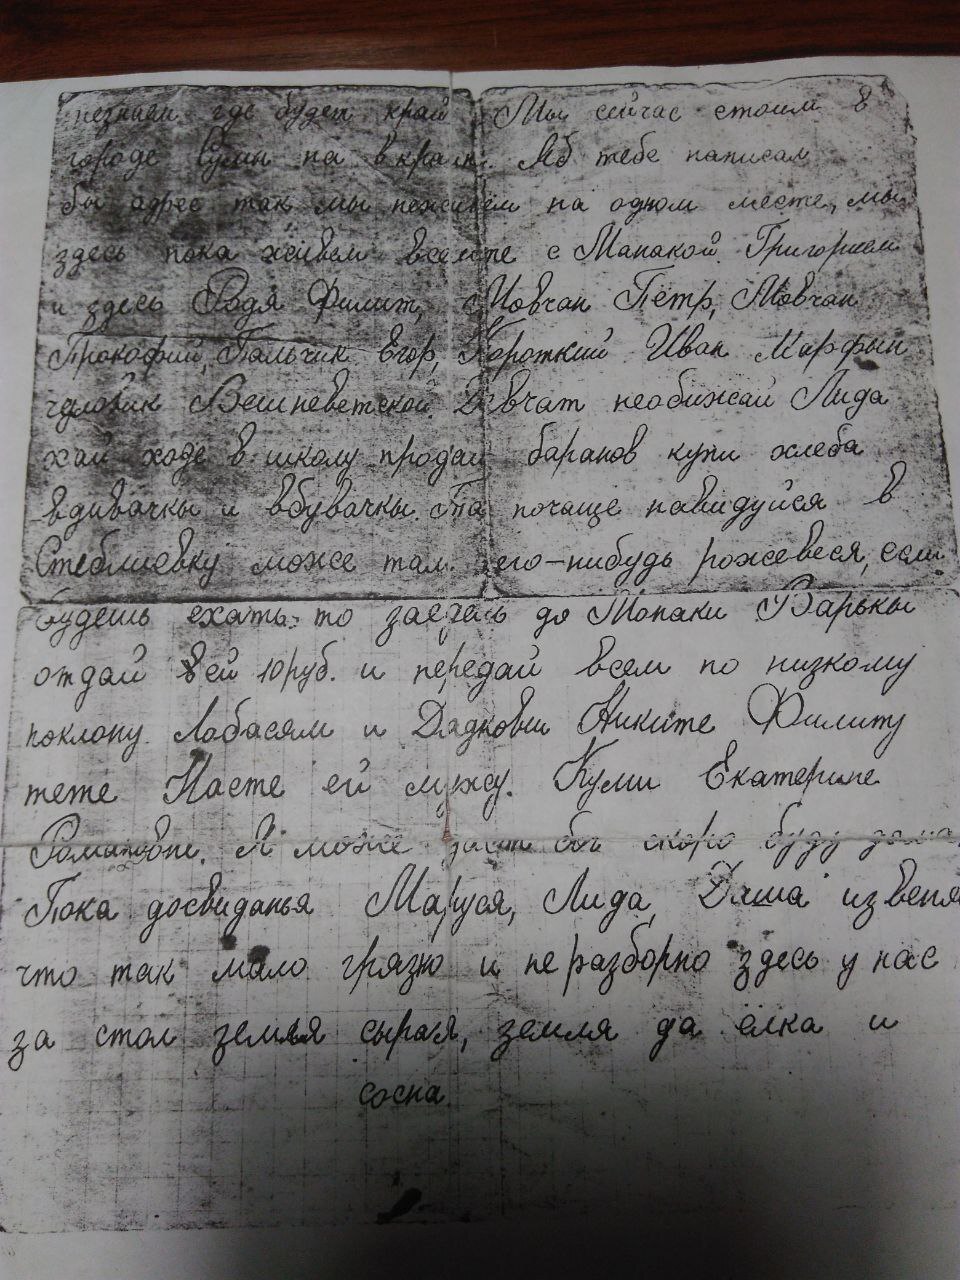 незнаем где будет край Мы сейчас стоим в
городе на вкраине. Яб тебе написал
бы адрес так мы неживём на одном месте, мы
здесь пока живем вместе с Мапакой Григорием
и здесь Родя Филип, Мовчан Пётр, Мовчан
Прокофий, Пальчик Егор, Короткий Иван Марфын
чуловик Вешневетской. Девчат необижай Лида
хай ходе в школу продай баранов купи хлеба
вдивачкы и вбувачкы. Та почаще навидуйся в
Стеблиевку може там его-нибудь рожевеся, если
будешь ехать то заедешь до Мопаки Варькы
отдай ей 10 руб. и передай всем по низкому
поклону. Лобасям и Дядковы Никите Филипу
тете Насте ей мужу. Куми Екатерине
Романовне. Я може даст бог скоро буду дома
Пока досвиданья Маруся, Лида, Даша извеня
что так мало грязно и не разборно здесь у нас
за стол земля сырая, земля да ёлка и
сосна.